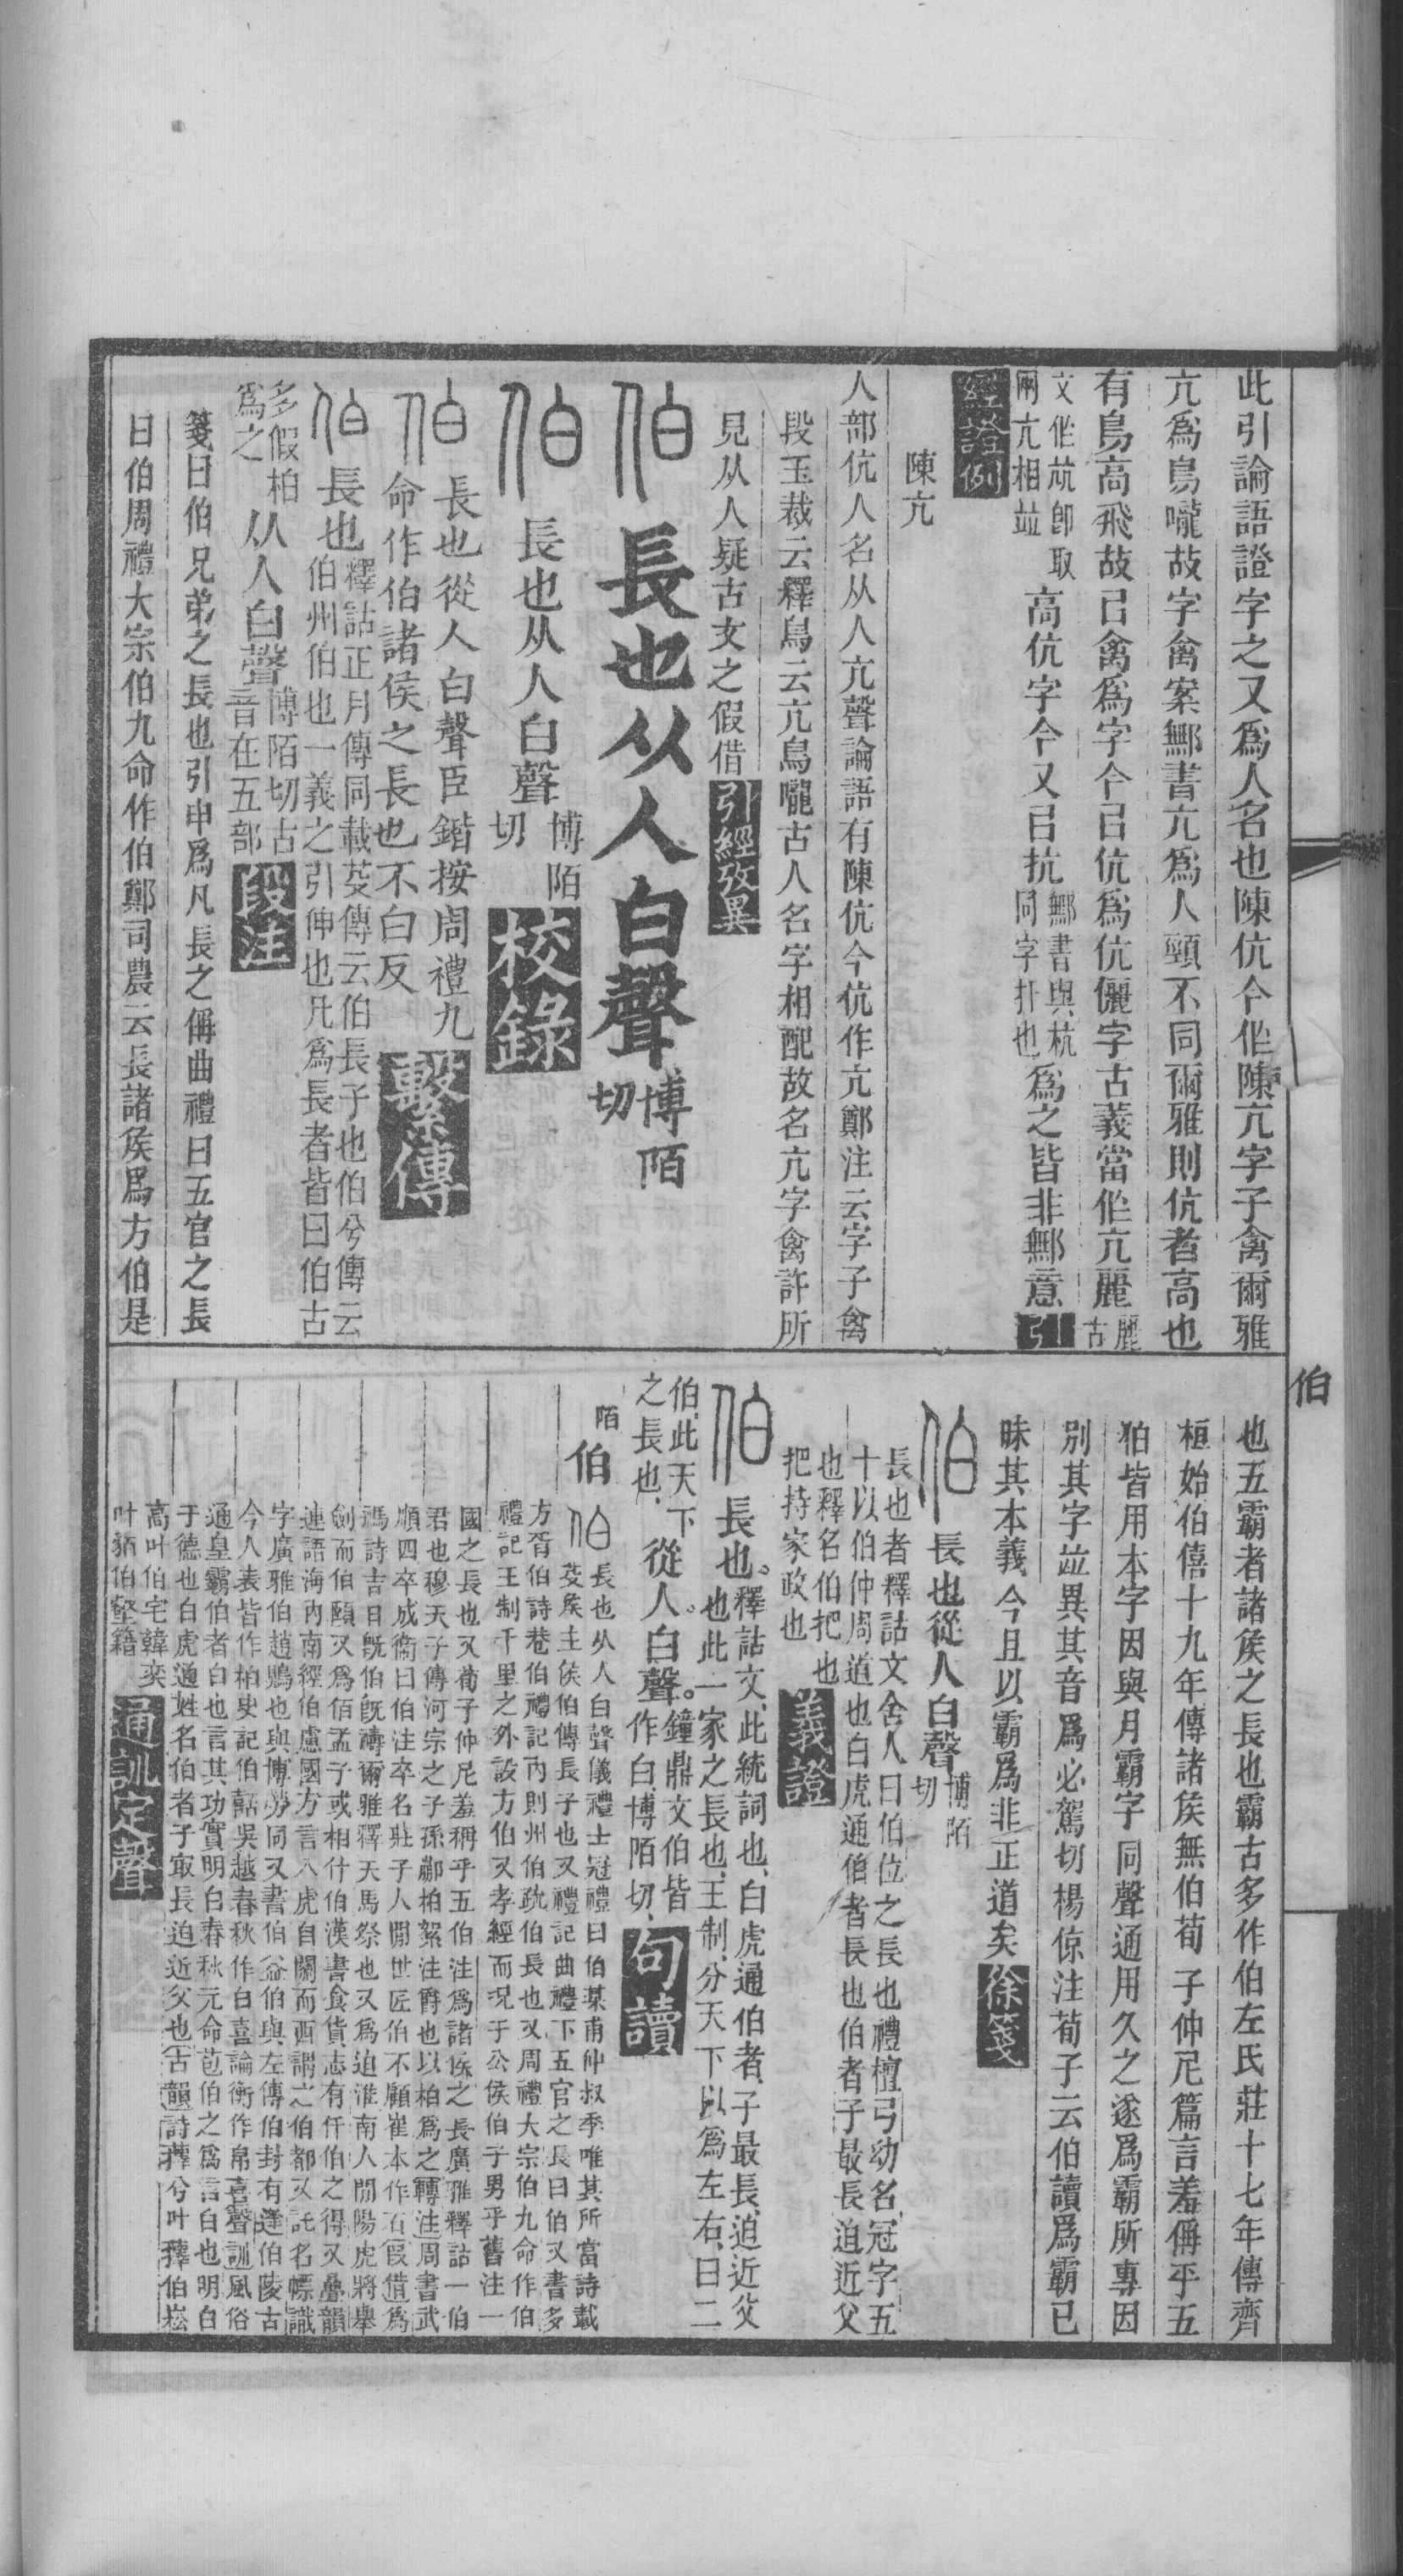 此引論語證字之又爲人名也陳伉今作陳亢字子禽爾雅
亢爲鳥嚨故字禽案鄦書亢爲人頸不同爾雅則伉者高也
有鳥高飛故㠯禽爲字今㠯伉爲伉儷字古義當作亢麗麗古
文作𠀙卽取
兩亢相竝
高伉字今又㠯抗鄦書與杭
同字扞也
爲之皆非鄦意引
經證例
陳亢
人部伉人名从人亢聲論語有陳伉今伉作亢鄭注云字子禽
段玉裁云釋鳥云亢鳥嚨古人名字相配故名亢字禽許所
見从人疑古文之假借引經攷異
伯長也从人白聲博陌
切
伯長也从人白聲博陌
切校錄
伯長也從人白聲臣鍇按周禮九
命作伯諸侯之長也不白反繫傳
伯長也釋詁正月傳同載芟傳云伯長子也伯兮傳云
伯州伯也一義之引伸也凡爲長者皆曰伯古
多假柏
爲之
从人白聲博陌切古
音在五部段注
箋曰伯兄弟之長也引申爲凡長之偁曲禮曰五官之長
曰伯周禮大宗伯九命作伯鄭司農云長諸矦爲方伯是
伯
也五霸者諸矦之長也霸古多作伯左氏莊十七年傳齊
桓始伯僖十九年傳諸矦無伯荀子仲尼篇言羞偁乎五
伯皆用本字因與月霸字同聲通用久之遂爲霸所專因
別其字竝異其音爲必駕切楊倞注荀子云伯讀爲霸已
昧其本義今且以霸爲非正道矣徐箋
伯長也從人白聲博陌
切
長也者釋詁文舍人曰伯位之長也禮檀弓幼名冠字五
十以伯仲周道也白虎通伯者長也伯者子最長迫近父
也釋名伯把也
把持家政也義證
伯長也。釋詁文、此統詞也、白虎通伯者、子最長、迫近父
也此一家之長也、王制、分天下以爲左右、曰二
伯、此天下
之長也、
從人。白聲。鐘鼎文伯皆
作白、博陌切、句讀
陌
伯
伯長也从人白聲儀禮士冠禮曰伯某甫仲叔季唯其所當詩載
芟矦主矦伯傳長子也又禮記曲禮下五官之長曰伯又書多
方胥伯詩巷伯禮記內則州伯疏伯長也又周禮大宗伯九命作伯
禮記王制千里之外設方伯又孝經而況于公侯伯子男乎舊注一
國之長也又荀子仲尼羞稱乎五伯注爲諸侯之長廣雅釋詁一伯
君也穆天子傳河宗之子孫䣙柏絮注爵也以柏爲之轉注周書武
順四卒成衞曰伯注卒名莊子人閒世匠伯不顧崔本作石叚借爲
禡詩吉日旣伯旣禱爾雅釋天馬祭也又爲迫淮南人閒陽虎將舉
劍而伯頤又爲佰孟子或相什伯漢書食貨志有仟伯之得又疊韻
連語海內南經伯慮國方言八虎自關而西謂之伯都又託名幖識
字廣雅伯趙鵙也與博勞同又書伯益伯與左傳伯封有逢伯陵古
今人表皆作柏史記伯嚭吳越春秋作白喜論衡作帛喜聲訓風俗
通皇霸伯者白也言其功實明白春秋元命苞伯之爲言白也明白
于德也白虎通姓名伯者子冣長迫近父也古韻詩蘀兮叶蘀伯崧
高叶伯宅韓奕
叶貊伯壑籍通訓定聲